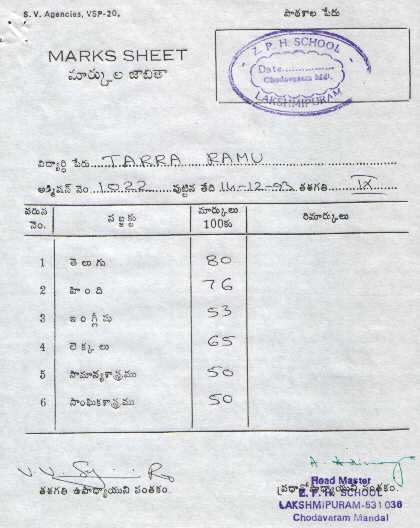 S. V. Agencies, VSP-20.
పాఠశాల పేరు
MARKS SHEET
మార్కుల జాబితా
Z. P. H. SCHOOL
Date
Chodavaram Mdl.
LAKSHMIPURAM
విద్యార్థి పేరు TARRA RAMU
అడ్మిషన్ నెం 1022 పుట్టిన తేది 14-12-93 తరగతి IX
వరుస నెం. సబ్జక్టు మార్కులు 100కు రిమార్కులు
1 తెలుగు 80
2 హింది 76
3 ఇంగ్లీషు 53
4 లెక్కలు 65
5 సామాన్యశాస్త్రము 50
6 సాంఘికశాస్త్రము 50
తరగతి ఉపాధ్యాయుని సంతకం. ప్రధానోపాధ్యాయుని సంతకం.
Head Master
Z. P. H. SCHOOL
LAKSHMIPURAM-531036
Chodavaram Mandal